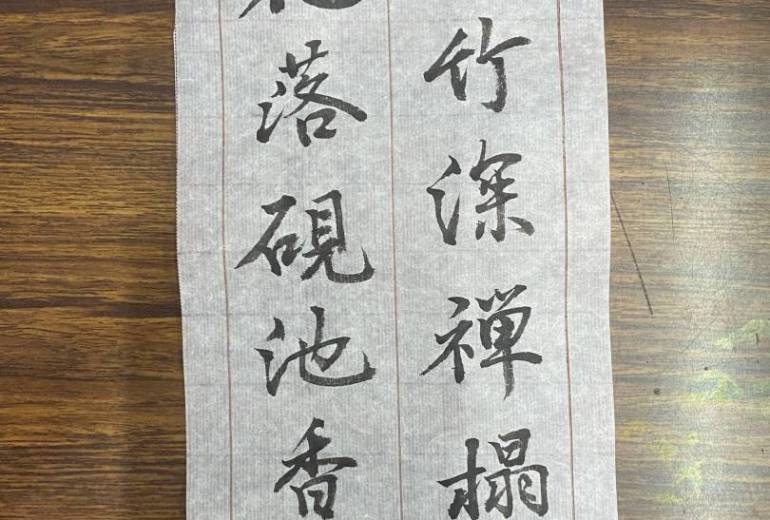 竹深禅榻
落硯池香